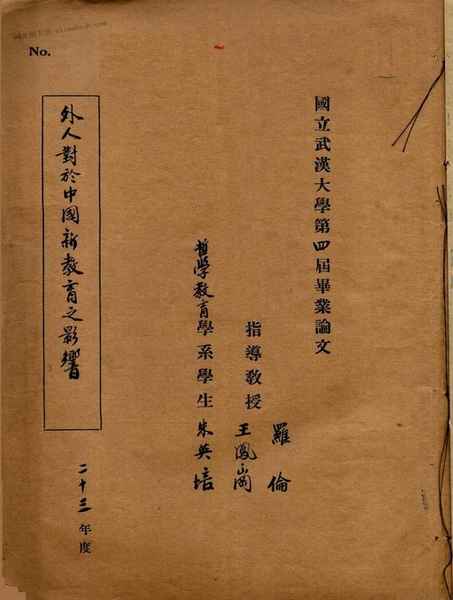 No.
國立武漢大學第四屆畢業論文
指導教授 羅倫
王鳳崗
哲學教育學系學生 朱英培
外人對於中國新教育之影響
二十三年度